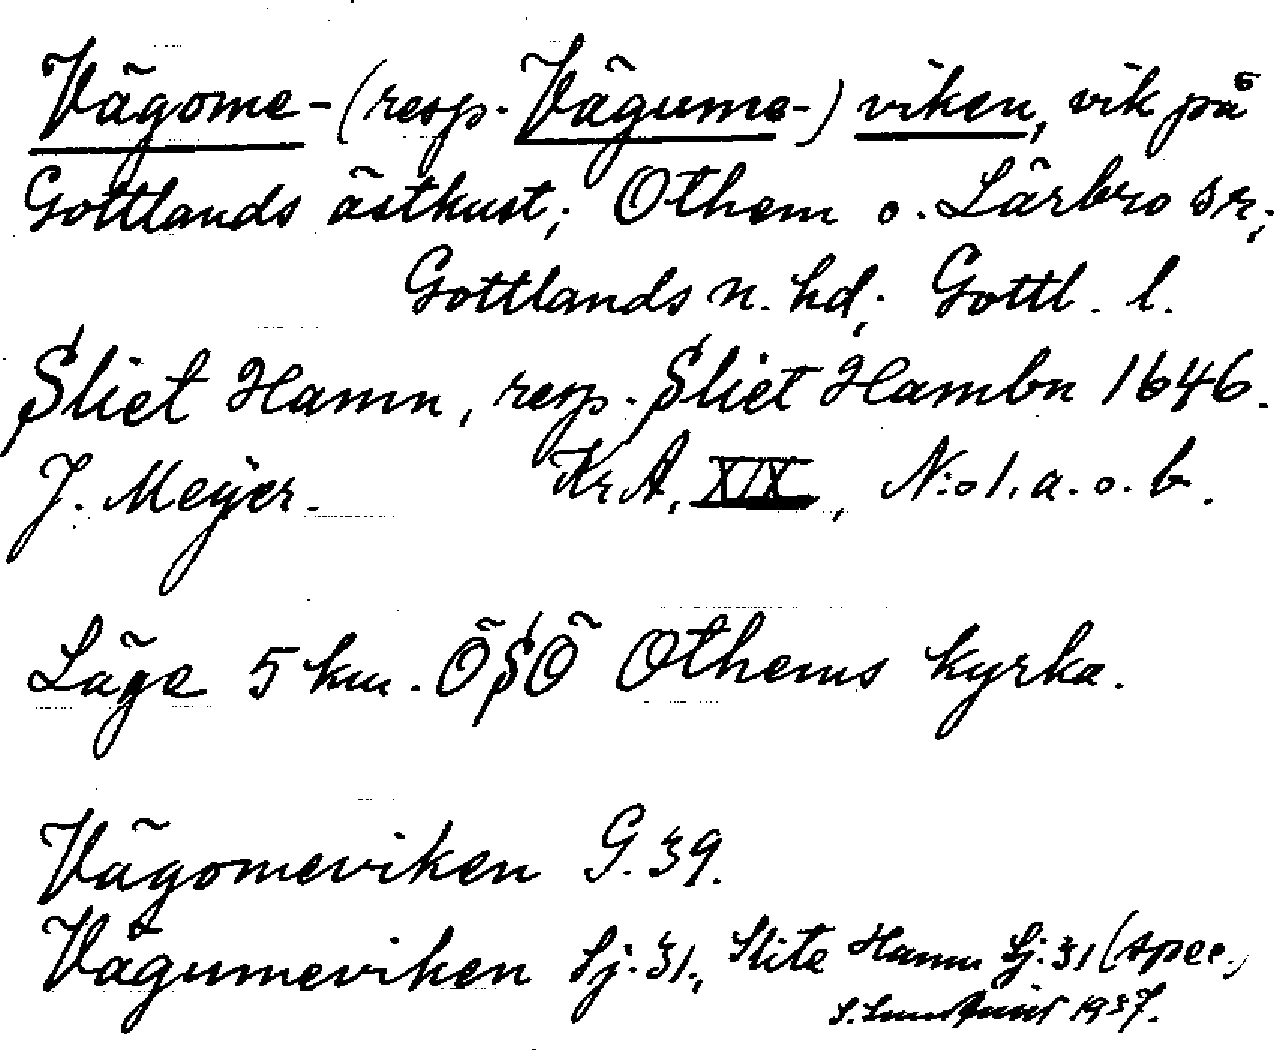 Vägome- (resp. Vägume-) viken, vik på
Gottlands östkust; Othem o. Lärbro sr;
Gottlands n. hd; Gottl. l.
Sliet Hamn, resp. Sliet Hambn 1646.
J. Meijer. Kr A, XIX, N:o 1. a. o. b.
Läge 5 km. ÖSÖ Othems kyrka.
Vägomeviken G. 39.
Vägumeviken Sj. 31., Slite Hamn Sj. 31 (spec.)
1937.